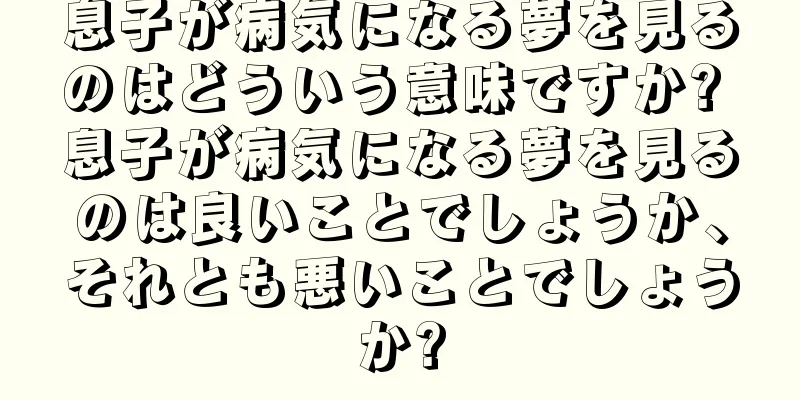 息子が病気になる夢を見る
のはどういう意味ですか?
息子が病気になる夢を見る
のは良いことでしょうか、
それとも悪いことでしょう
か?